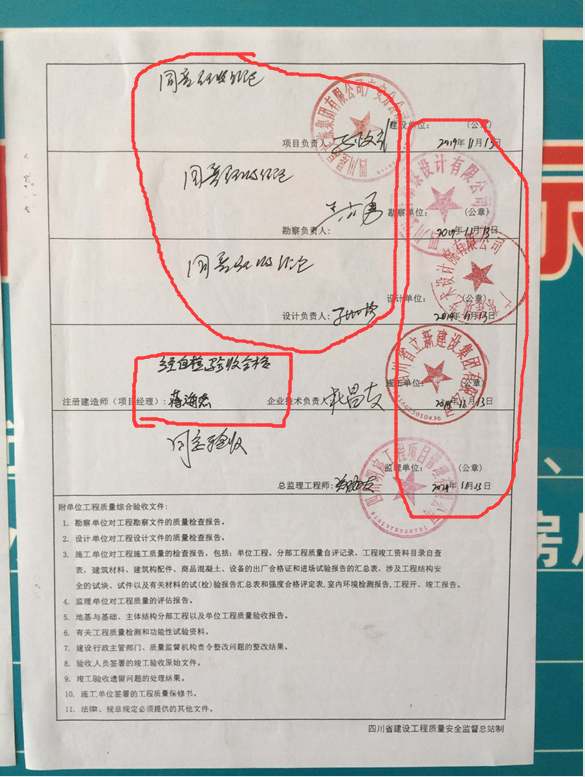 同意验收结论
建设单位： （公章）
项目负责人： 2019年11月13日
同意验收结论
勘察单位： （公章）
勘察负责人： 2019年11月13日
同意验收结论
设计单位： （公章）
设计负责人： 2019年11月13日
经自检验收合格
施工单位： （公章）
注册建造师（项目经理）： 企业技术负责人 2019年11月13日
四川省立新建设集团有限公司
同意验收
监理单位： （公章）
总监理工程师： 2019年11月13日
附单位工程质量综合验收文件：
1. 勘察单位对工程勘察文件的质量检查报告。
2. 设计单位对工程设计文件的质量检查报告。
3. 施工单位对工程施工质量的检查报告，包括：单位工程、分部工程质量自评记录，工程竣工资料目录自查
表，建筑材料、建筑构配件、商品混凝土、设备的出厂合格证和进场试验报告的汇总表，涉及工程结构安
全的试块、试件以及有关材料的试(检)验报告汇总表和强度合格评定表,室内环境检测报告,工程开、竣工报告。
4. 监理单位对工程质量的评估报告。
5. 地基与基础、主体结构分部工程以及单位工程质量验收报告。
6. 有关工程质量检测和功能性试验资料。
7. 建设行政主管部门、质量监督机构责令整改问题的整改结果。
8. 验收人员签署的竣工验收原始文件。
9. 竣工验收遗留问题的处理结果。
10. 施工单位签署的工程质量保修书。
11. 法律、规章规定必须提供的其他文件。
四川省建设工程质量安全监督总站制
房